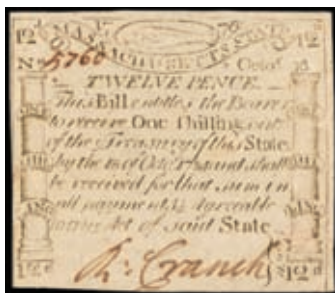 12d 17 76 12d
MASSACHUSETTS STATE
No 5760 Octor. 18
TWELVE PENCE.
This Bill entitles the Bearer
to receive One Shilling out
of the Treasury of this State
by the and shall
be received for that sum in
all payments agreeable
Act of said State
R: Cranch
12d 12d